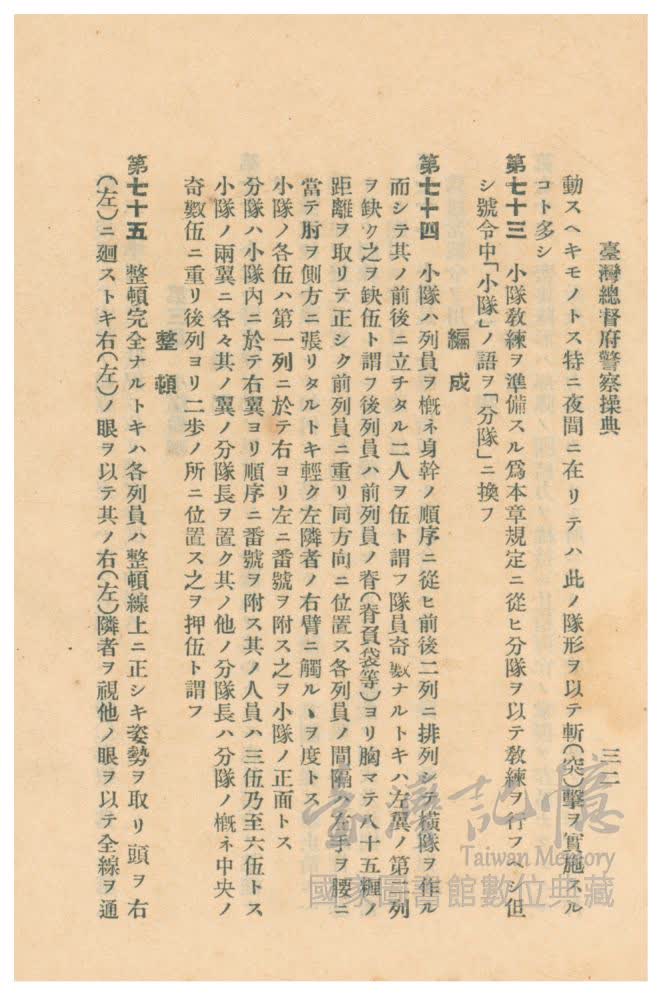 臺灣總督府警察操典
三二
動スヘキモノトス特ニ夜間ニ在リテハ此ノ隊形ヲ以テ斬(突)擊ヲ實施スル
コト多シ
第七十三 小隊敎練ヲ準備スル爲本章規定ニ從ヒ分隊ヲ以テ敎練ヲ行フヘシ但
シ號令中「小隊」ノ語ヲ「分隊」ニ換フ
編成
第七十四 小隊ハ列員ヲ槪ネ身幹ノ順序ニ從ヒ前後二列ニ排列シテ橫隊ヲ作ル
而シテ其ノ前後ニ立チタル二人ヲ伍ト謂フ隊員奇數ナルトキハ左翼ノ第二列
ヲ缺ク之ヲ缺伍ト謂フ後列員ハ前列員ノ脊(脊負袋等)ヨリ胸マテ八十五糎ノ
距離ヲ取リテ正シク前列員ニ重リ同方向ニ位置ス各列員ノ間隔ハ左手ヲ腰ニ
當テ肘ヲ側方ニ張リタルトキ輕ク左隣者ノ右臂ニ觸ルヽヲ度トス
小隊ノ各伍ハ第一列ニ於テ右ヨリ左ニ番號ヲ附ス之ヲ小隊ノ正面トス
分隊ハ小隊內ニ於テ右翼ヨリ順序ニ番號ヲ附ス其ノ人員ハ三伍乃至六伍トス
小隊ノ兩翼ニ各々其ノ翼ノ分隊長ヲ置ク其ノ他ノ分隊長ハ分隊ノ槪ネ中央ノ
奇數伍ニ重リ後列ヨリ二步ノ所ニ位置ス之ヲ押伍ト謂フ
整頓
第七十五 整頓完全ナルトキハ各列員ハ整頓線上ニ正シキ姿勢ヲ取リ頭ヲ右
(左)ニ廻ストキ右(左)ノ眼ヲ以テ其ノ右(左)隣者ヲ視他ノ眼ヲ以テ全線ヲ通
臺灣記憶
Taiwan Memory
國家圖書館數位典藏